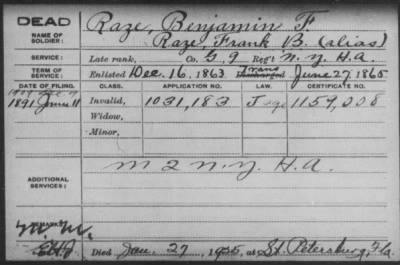 DEAD
Raze, Benjamin F.
NAME OF SOLDIER:
Raze, Frank B. (alias)
SERVICE: Late rank, Co. G, 9 Reg't N.Y. H.A.
TERM OF SERVICE: Enlisted Dec. 16, 1863 Trans June 27, 1865
DATE OF FILING. CLASS. APPLICATION NO. CERTIFICATE NO.
1891 June 11 Invalid, 1031,183 1159,008
Widow,
Minor,
ADDITIONAL SERVICES: M 2 N.Y. H.A.
REMARKS:
Died Jan. 27, 1925, at St. Petersburg, Fla.